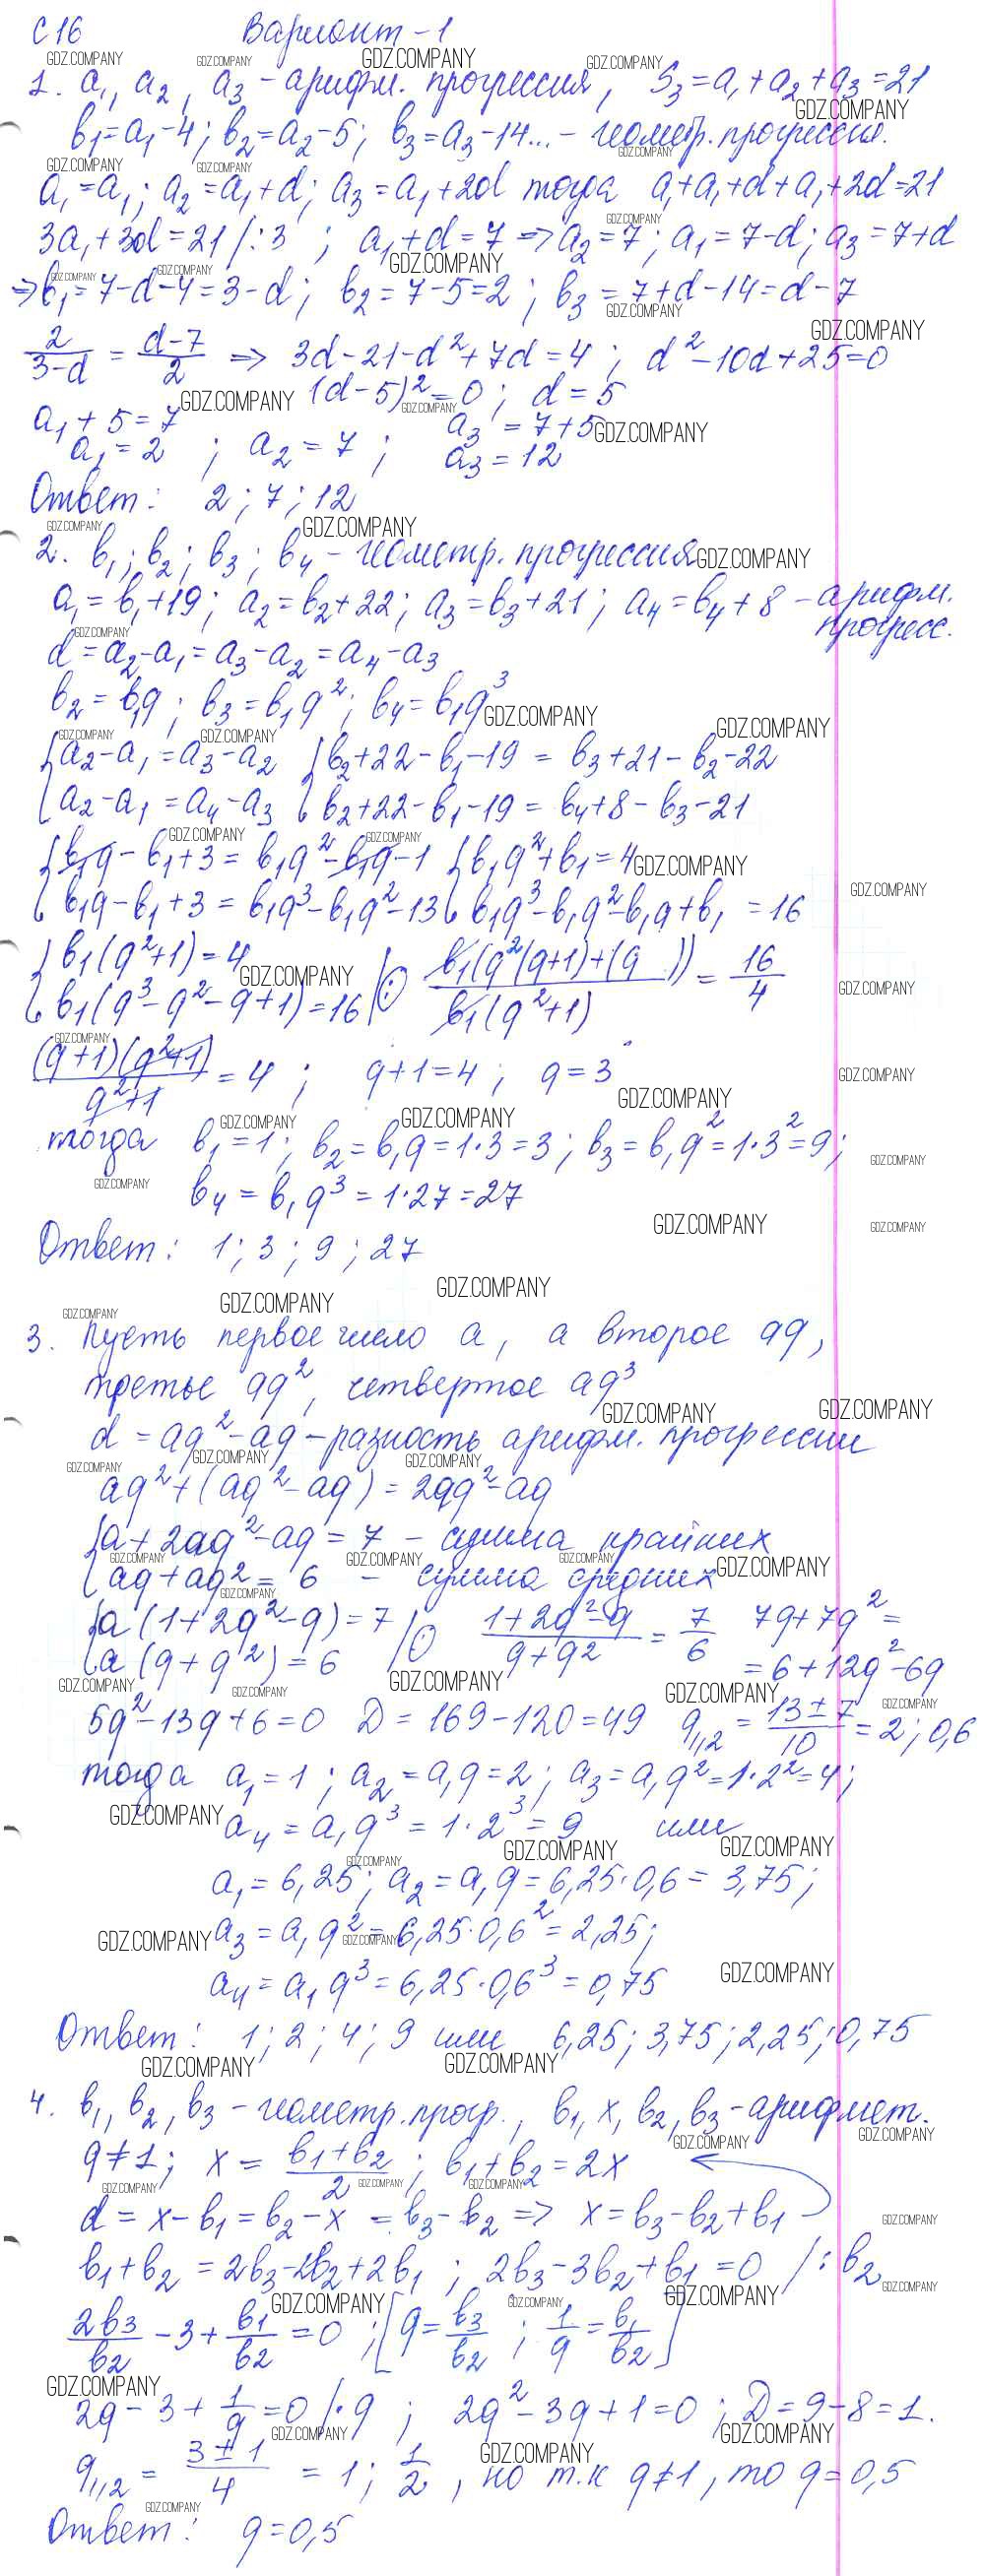 С16 Вариант-1
1. a₁, a₂, a₃ - арифм. прогрессия, S₃=a₁+a₂+a₃=21
b₁=a₁-4; b₂=a₂-5; b₃=a₃-14... - геометр. прогрессия.
a₁=a₁; a₂=a₁+d; a₃=a₁+2d тогда a₁+a₁+d+a₁+2d=21
3a₁+3d=21 /:3 ; a₁+d=7 => a₂=7; a₁=7-d; a₃=7+d
=> b₁=7-d-4=3-d; b₂=7-5=2; b₃=7+d-14=d-7
2/(3-d) = (d-7)/2 => 3d-21-d²+7d=4; d²-10d+25=0
(d-5)²=0; d=5
a₁+5=7 a₃=7+5
a₁=2 ; a₂=7 ; a₃=12
Ответ: 2; 7; 12
2. b₁; b₂; b₃; b₄ - геометр. прогрессия
a₁=b₁+19; a₂=b₂+22; a₃=b₃+21; a₄=b₄+8 - арифм.
прогресс.
d=a₂-a₁=a₃-a₂=a₄-a₃
b₂=b₁q; b₃=b₁q²; b₄=b₁q³
{a₂-a₁=a₃-a₂ {b₂+22-b₁-19=b₃+21-b₂-22
{a₂-a₁=a₄-a₃ {b₂+22-b₁-19=b₄+8-b₃-21
{b₁q-b₁+3=b₁q²-b₁q-1 {b₁q²+b₁=4
{b₁q-b₁+3=b₁q³-b₁q²-13 {b₁q³-b₁q²-b₁q+b₁=16
{b₁(q²+1)=4
{b₁(q³-q²-q+1)=16 /: b₁(q²(q+1)+(q ))/b₁(q²+1) = 16/4
(q+1)(q²+1)/(q²+1) = 4; q+1=4; q=3
тогда b₁=1; b₂=b₁q=1·3=3; b₃=b₁q²=1·3²=9;
b₄=b₁q³=1·27=27
Ответ: 1; 3; 9; 27
3. Пусть первое число a, а второе aq,
третье aq², четвертое aq³
d=aq²-aq - разность арифм. прогрессии
aq²+(aq²-aq)=2aq²-aq
{a+2aq²-aq=7 - сумма крайних
{aq+aq²=6 - сумма средних
{a(1+2q²-q)=7
{a(q+q²)=6 /: (1+2q²-q)/(q+q²) = 7/6 7q+7q²=
=6+12q²-6q
5q²-13q+6=0 D=169-120=49 q₁,₂=(13±7)/10=2; 0,6
тогда a₁=1; a₂=a₁q=2; a₃=a₁q²=1·2²=4;
a₄=a₁q³=1·2³=9 или
a₁=6,25; a₂=a₁q=6,25·0,6=3,75;
a₃=a₁q²=6,25·0,6²=2,25;
a₄=a₁q³=6,25·0,6³=0,75
Ответ: 1; 2; 4; 9 или 6,25; 3,75; 2,25; 0,75
4. b₁, b₂, b₃ - геометр. прогр., b₁, x, b₂, b₃ - арифмет.
q≠1; x=(b₁+b₂)/2; b₁+b₂=2x
d=x-b₁=b₂-x=b₃-b₂ => x=b₃-b₂+b₁
b₁+b₂=2b₃-2b₂+2b₁; 2b₃-3b₂+b₁=0 /:b₂
2b₃/b₂-3+b₁/b₂=0; [q=b₃/b₂; 1/q=b₁/b₂]
2q-3+1/q=0 /·q; 2q²-3q+1=0; D=9-8=1.
q₁,₂=(3±1)/4=1; 1/2, но т.к q≠1, то q=0,5
Ответ: q=0,5
GDZ.COMPANY